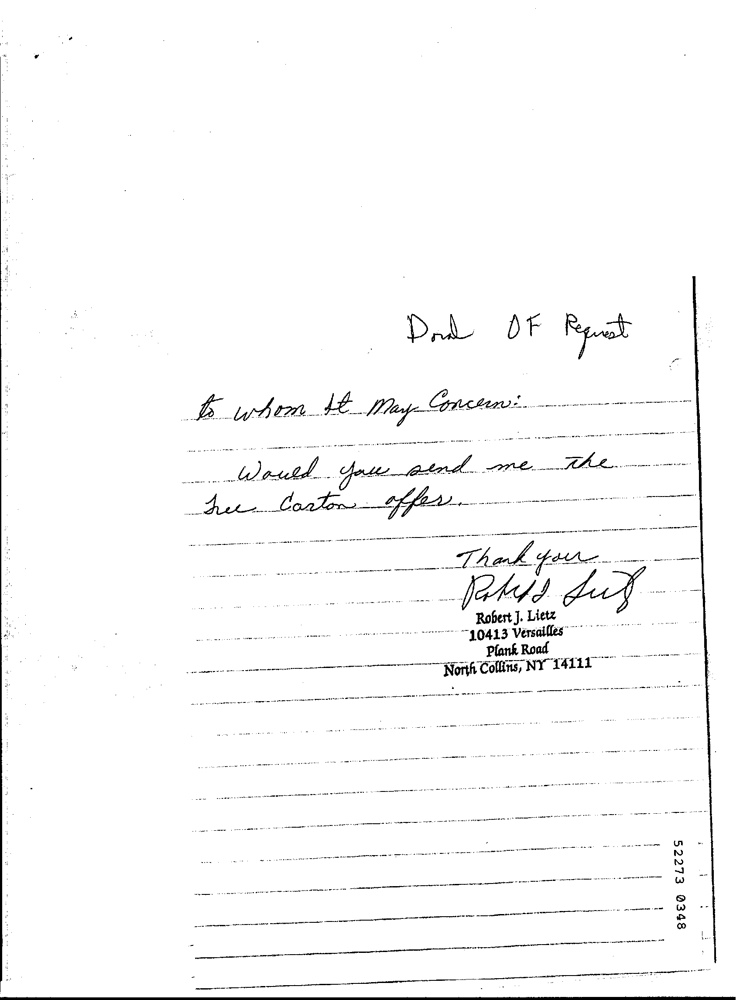 Doral OF Request
to whom It May Concern:
Would you send me the
free Carton offer.
Thank you
Robert J. Lietz
Robert J. Lietz
10413 Versailles
Plank Road
North Collins, NY 14111
52273 0348